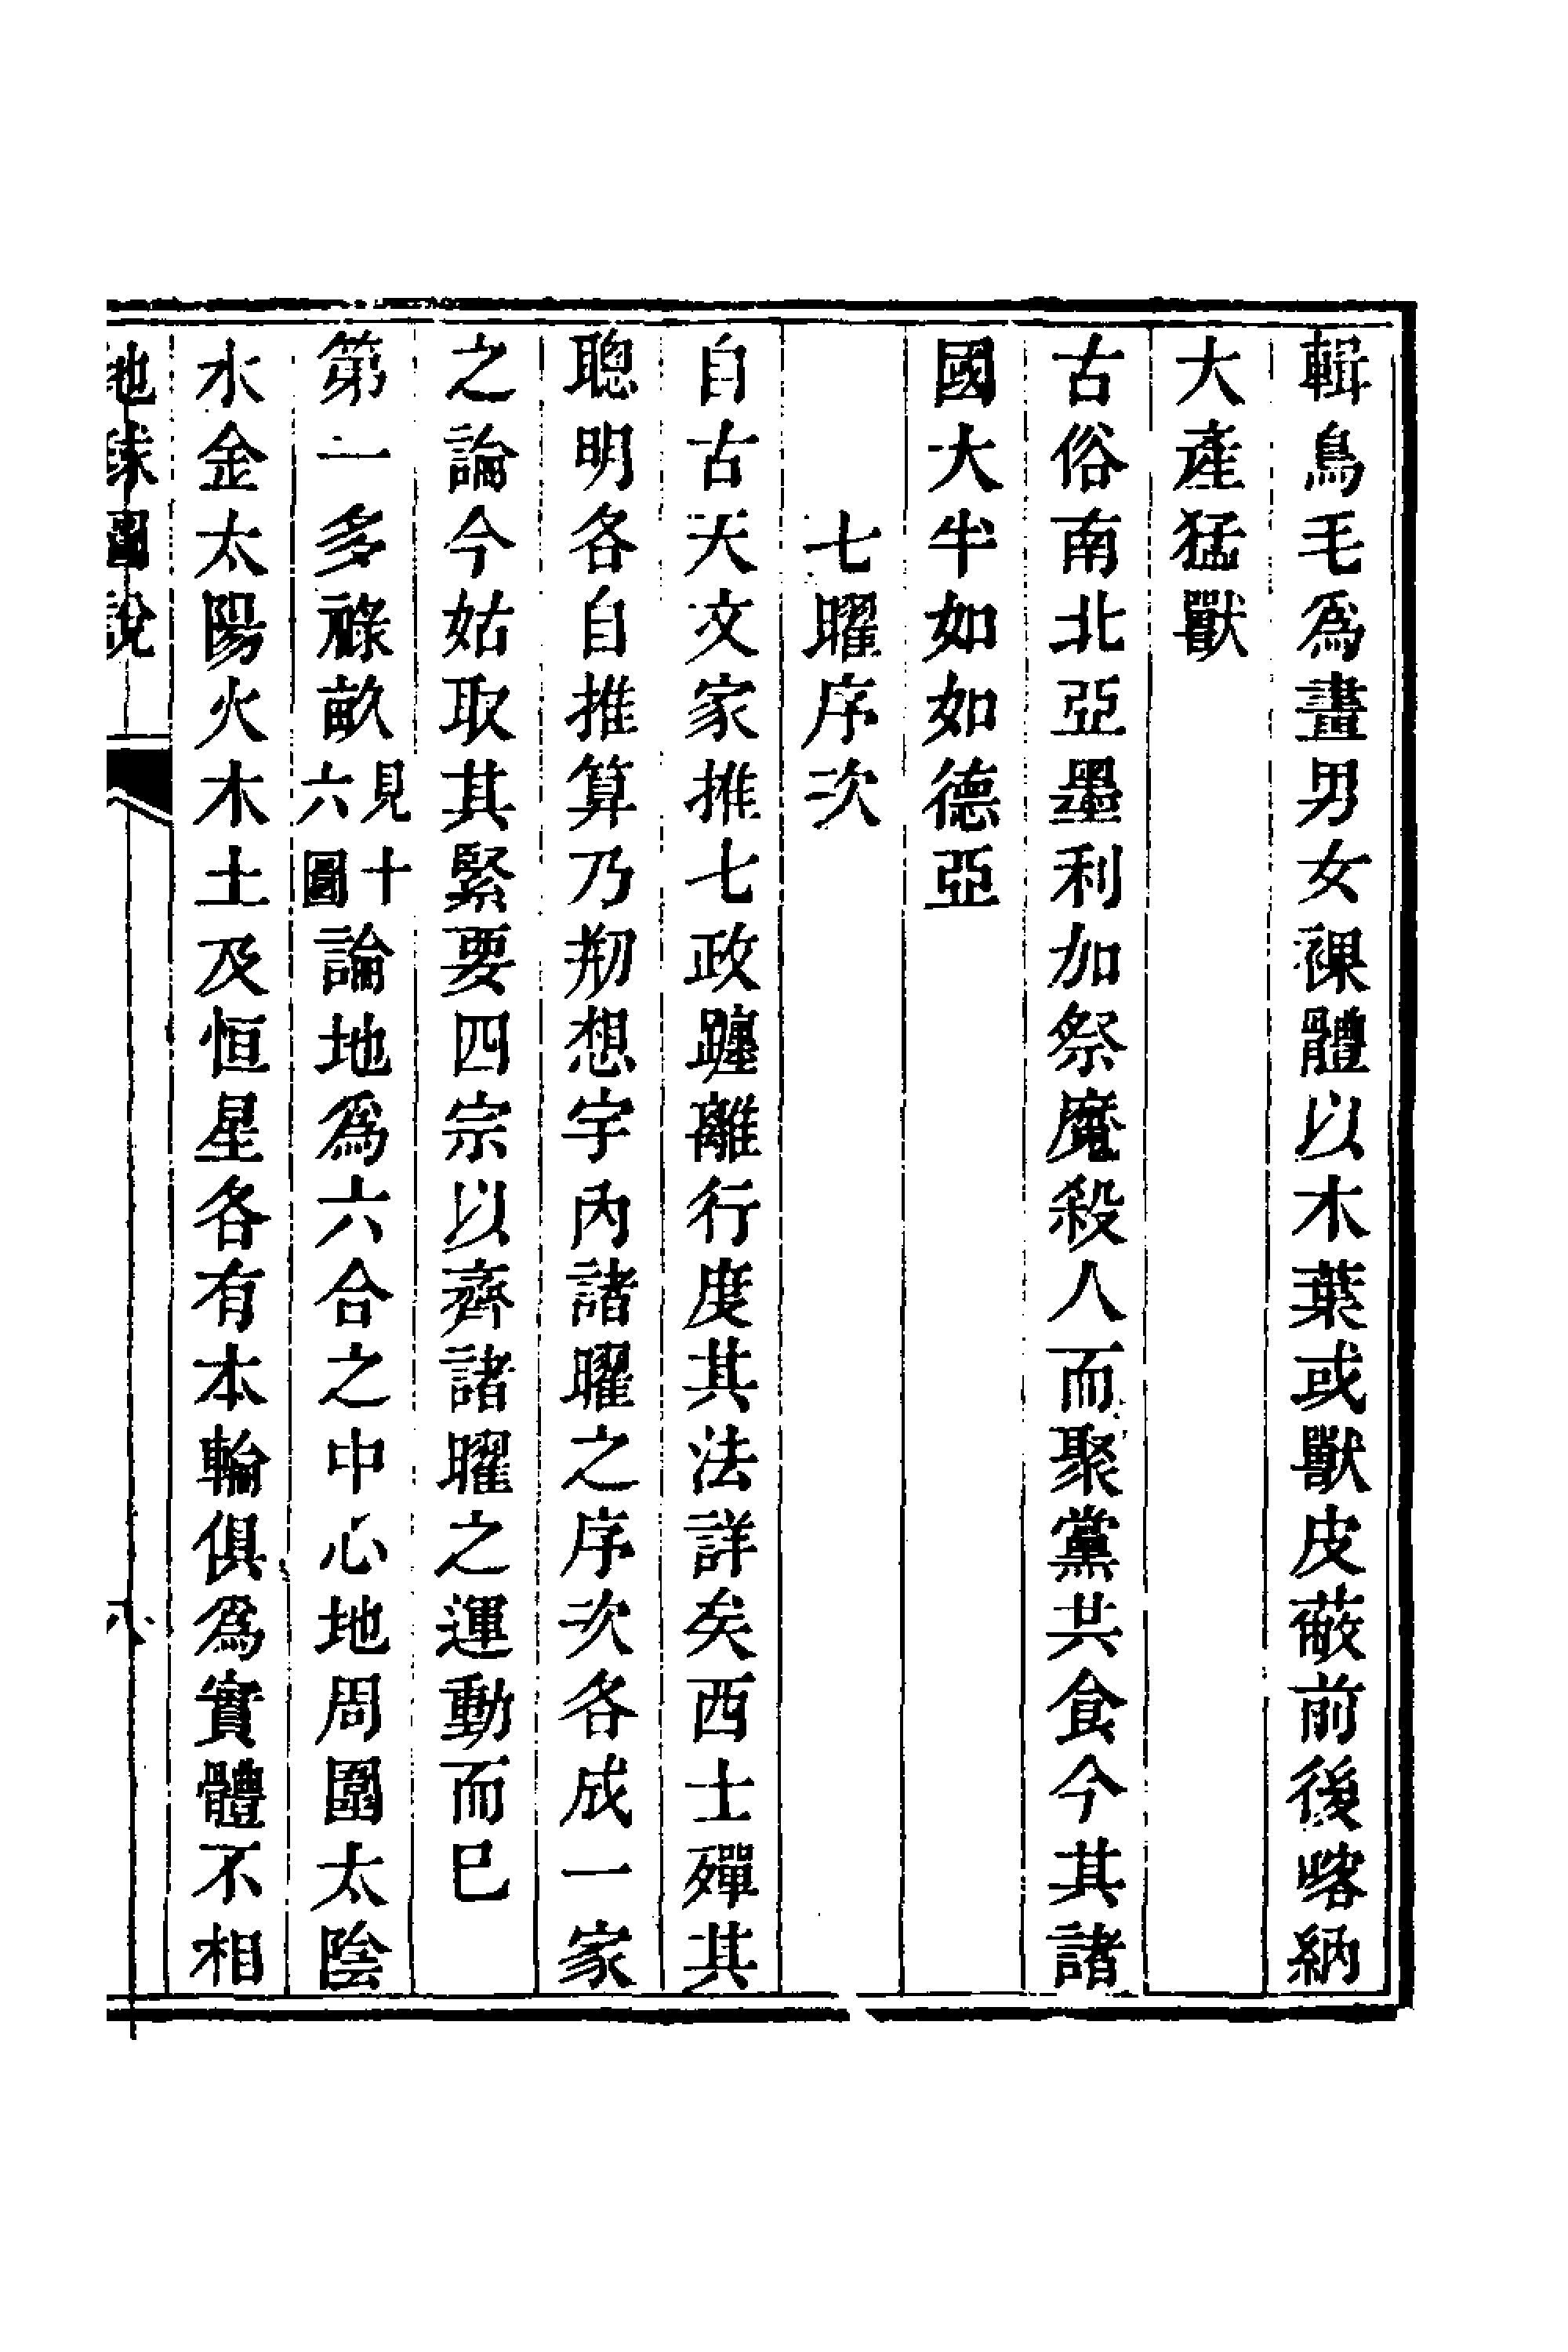 輯鳥毛爲畫男女裸體以木葉或獸皮蔽前後喀納
大產猛獸
古俗南北亞墨利加祭魔殺人而聚黨共食今其諸
國大半如如德亞
七曜序次
自古天文家推七政躔離行度其法詳矣西士殫其
聰明各自推算乃剏想宇內諸曜之序次各成一家
之論今姑取其緊要四宗以齊諸曜之運動而已
第一多祿畝見十六圖論地爲六合之中心地周圍太陰
水金太陽火木土及恒星各有本輪俱爲實體不相
地球圖說
八